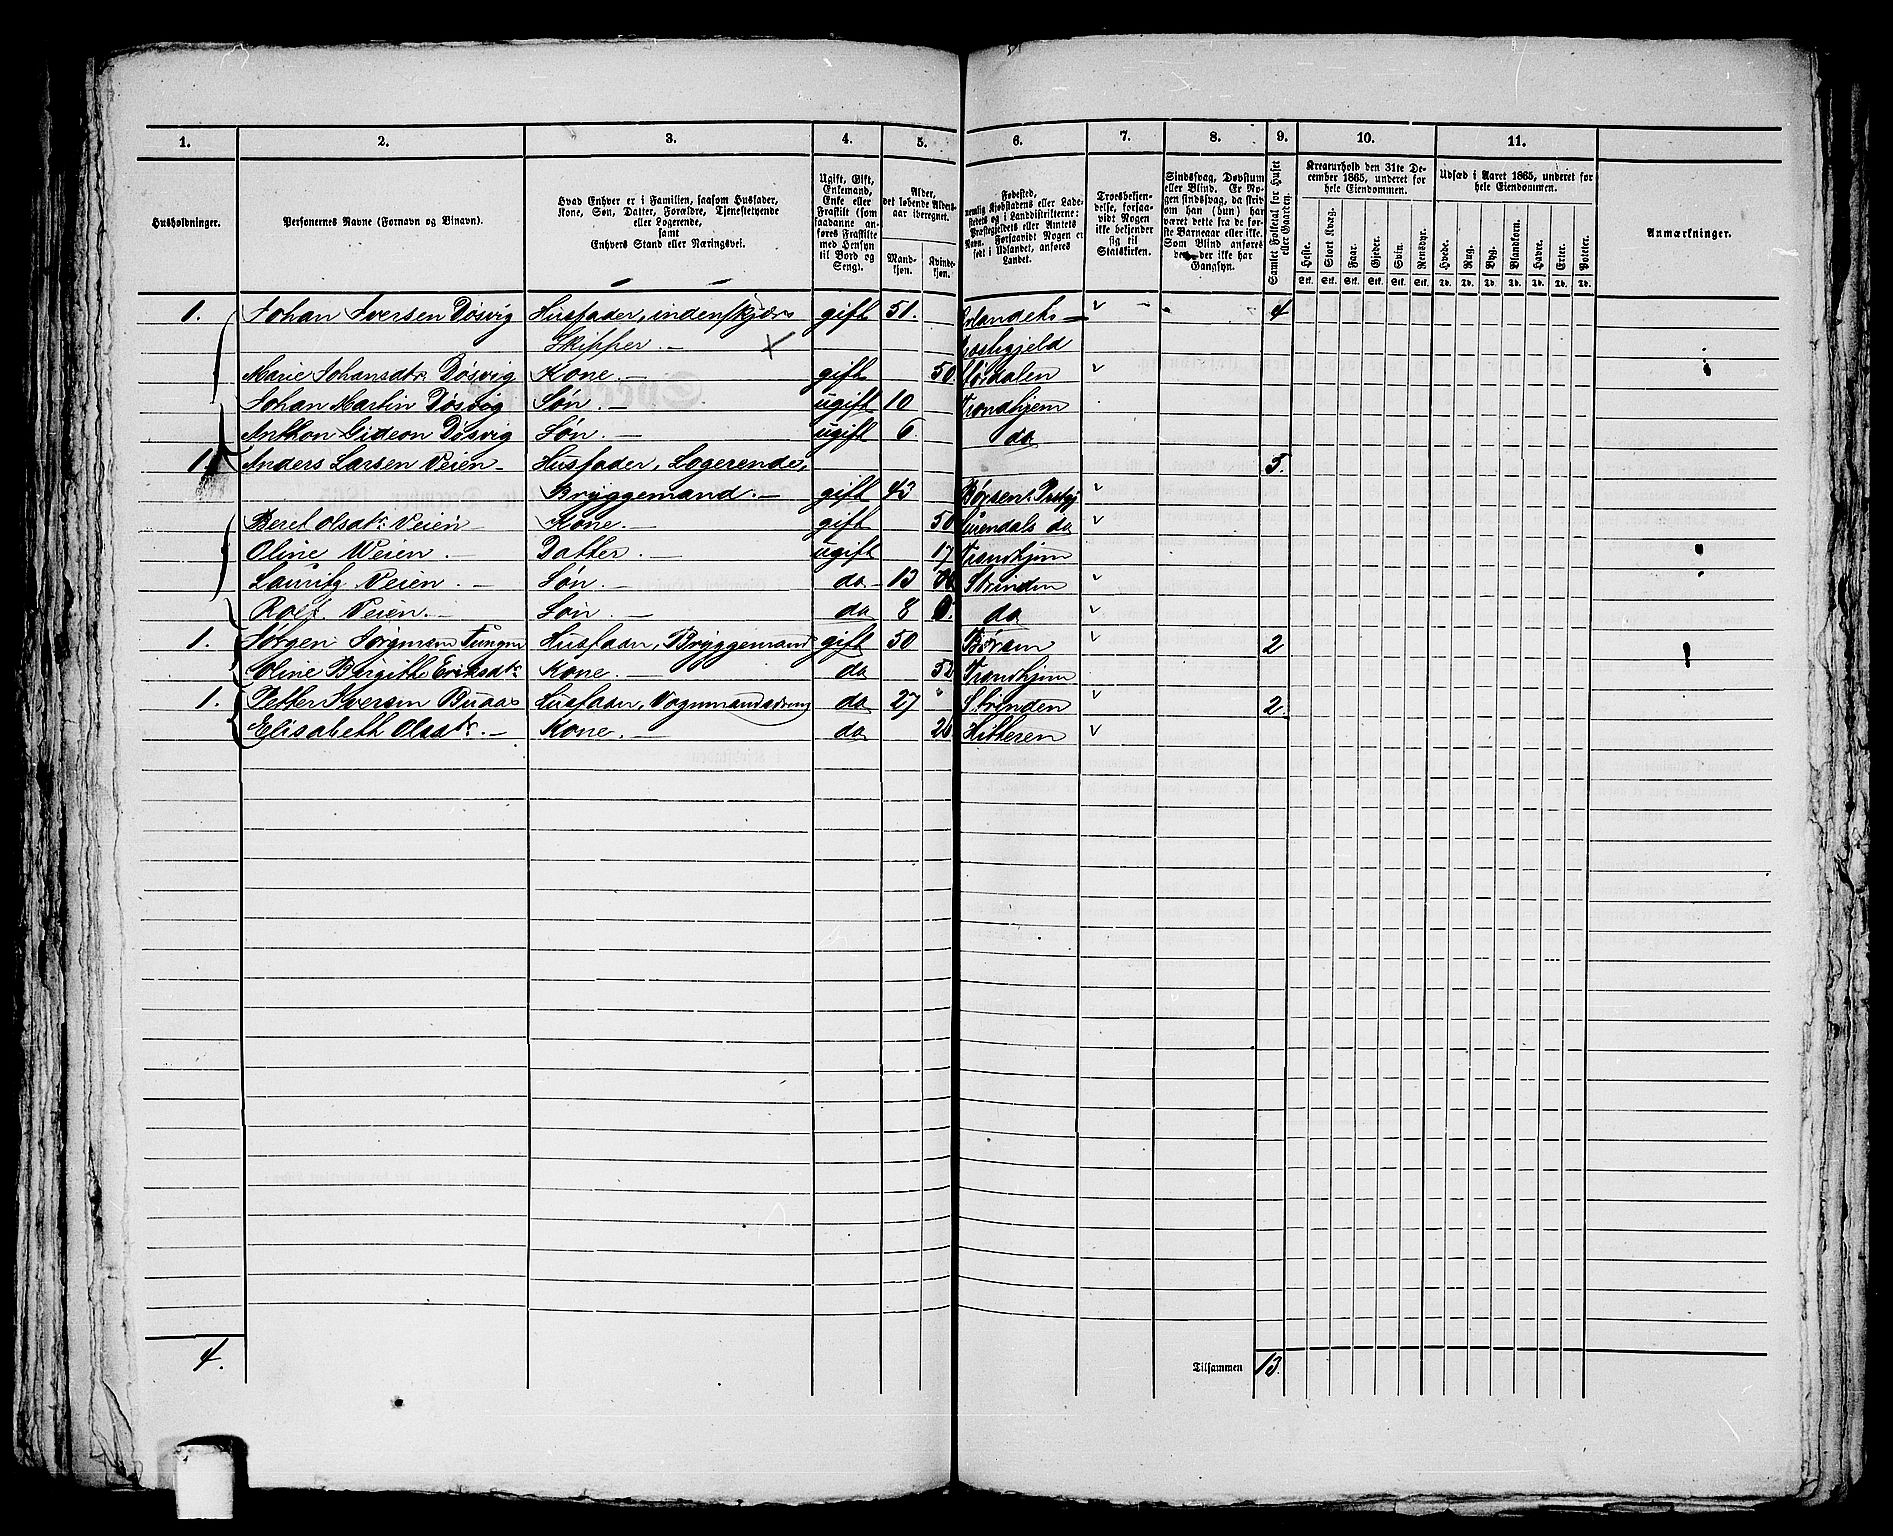 1. 2. 3. 4. 5. 6. 7. 8. 9. 10. 11.
Husholdninger.
Personernes Navne (Fornavn og Tilnavn).
Hvad Enhver er i Familien, saasom Husfader,
Kone, Søn, Datter, Forældre, Tjenestetyende
eller Logerende,
samt
Enhvers Stand eller Næringsvei.
Ugift, Gift,
Enkemand,
Enke eller
Fraskilt (som
saadanne an-
føres Fraskilte
med Hensyn
til Bord og
Seng).
Alder,
det løbende Alders-
aar iberegnet.
Mand-
kjøn.
Kvinde-
kjøn.
Fødested,
nemlig Kjøbstadens eller Lade-
stedets og i Landdistrikterne:
Præstegjeldets eller Amtets
Navn. Forsaavidt Nogen er
født i Udlandet, anføres
Landet.
Troesbekjen-
delse, forsaa-
vidt Nogen
ikke bekjender
sig til
Statskirken.
Sindssvag, Døvstum
eller Blind. Er No-
gen sindssvag, da skrives,
om han (hun) har
været dette fra de før-
ste Barneaar eller ikke.
Som Blind anføres
den, der ikke har
Gangsyn.
Samlet Folketal for Huset
eller Gaarden.
Kreaturhold den 31te De-
cember 1865, underet for
hele Eiendommen.
Heste. Stort Kvæg. Faar. Gjeder. Svin. Rensdyr.
Stk. Stk. Stk. Stk. Stk. Stk.
Udsæd i Aaret 1865, underet for
hele Eiendommen.
Hvede. Rug. Byg. Blandkorn. Havre. Erter. Poteter.
Td. Td. Td. Td. Td. Td. Td.
Anmærkninger.
1. Johan Iversen Døsvig Husfader, indenskjærs gift 51. 4
Skipper. — Præstegjeld
Marie Johansdtr. Døsvig Kone. — gift 50. Størdalen
Johan Martin Døsvig Søn. — ugift 10 Trondhjem
Anthon Gideon Døsvig Søn. — ugift 6. do
1. Anders Larsen Veien — Husfader, Logerende, 5.
Bryggemand. — gift 43 Børsens Prstgj
Beret Olsdtr. Veien — Kone. — gift 50 do
Oline Veien. — Datter. — ugift 17 Trondhjem
Lauritz Veien. — Søn. — do — 13 Strinden
Rolf. Veien. — Søn — do 8 do
1. Jørgen Jørgensen Husfader, Bryggemand gift 50 Børsen 2
Oline Birgithe Eriksdtr. Kone. — do 52 Trondhjem
1. Petter Iversen Buaas Husfader, Vognmandsdreng do 27 " Strinden 2.
Elisabeth Olsdtr. — Kone. — do 26 Hitteren
4. Tilsammen 13.